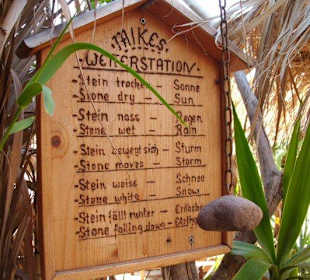 MIKES
WETTERSTATION
Stein trocken - Sonne
Stone dry - Sun
Stein nass - Regen
Stone wet - Rain
Stein bewegt sich - Sturm
Stone moves - Storm
Stein weiss - Schnee
Stone white - Snow
Stein fällt runter -
Stone falling down -